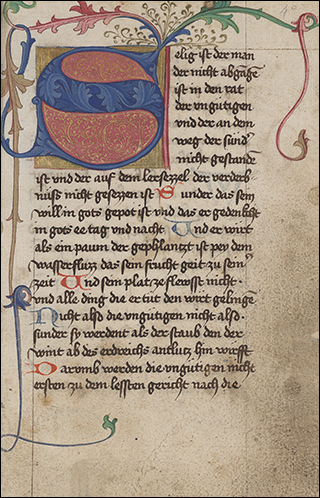 Selig ist der man
der nicht abgãgẽ
ist in den rat
der vngütigen
vnd der an dem
weg der sünd˜
nicht gestandẽ
ist vnd der auf dem lersezzel der verderb
nüss nicht gesezzen ist Sunder das sein
will in gots gepot ist vnd das er gedenkht
in gots ee tag vnd nacht Und er wirt
als ein paum der gephlantzt ist pey dem
wasserflüzz das sein frucht geit zu sein˜
zeit Und sein platze flewsst nicht ·
vnd alle ding die er tut den wirt gelingẽ
Nicht also die vngütigen nicht also ·
sunder sy werdent als der staub den der
wint ab des erdreichs antlutz hin wirfft
Darumb werden die vngutigen nicht
ersten zu dem lessten gericht nach die